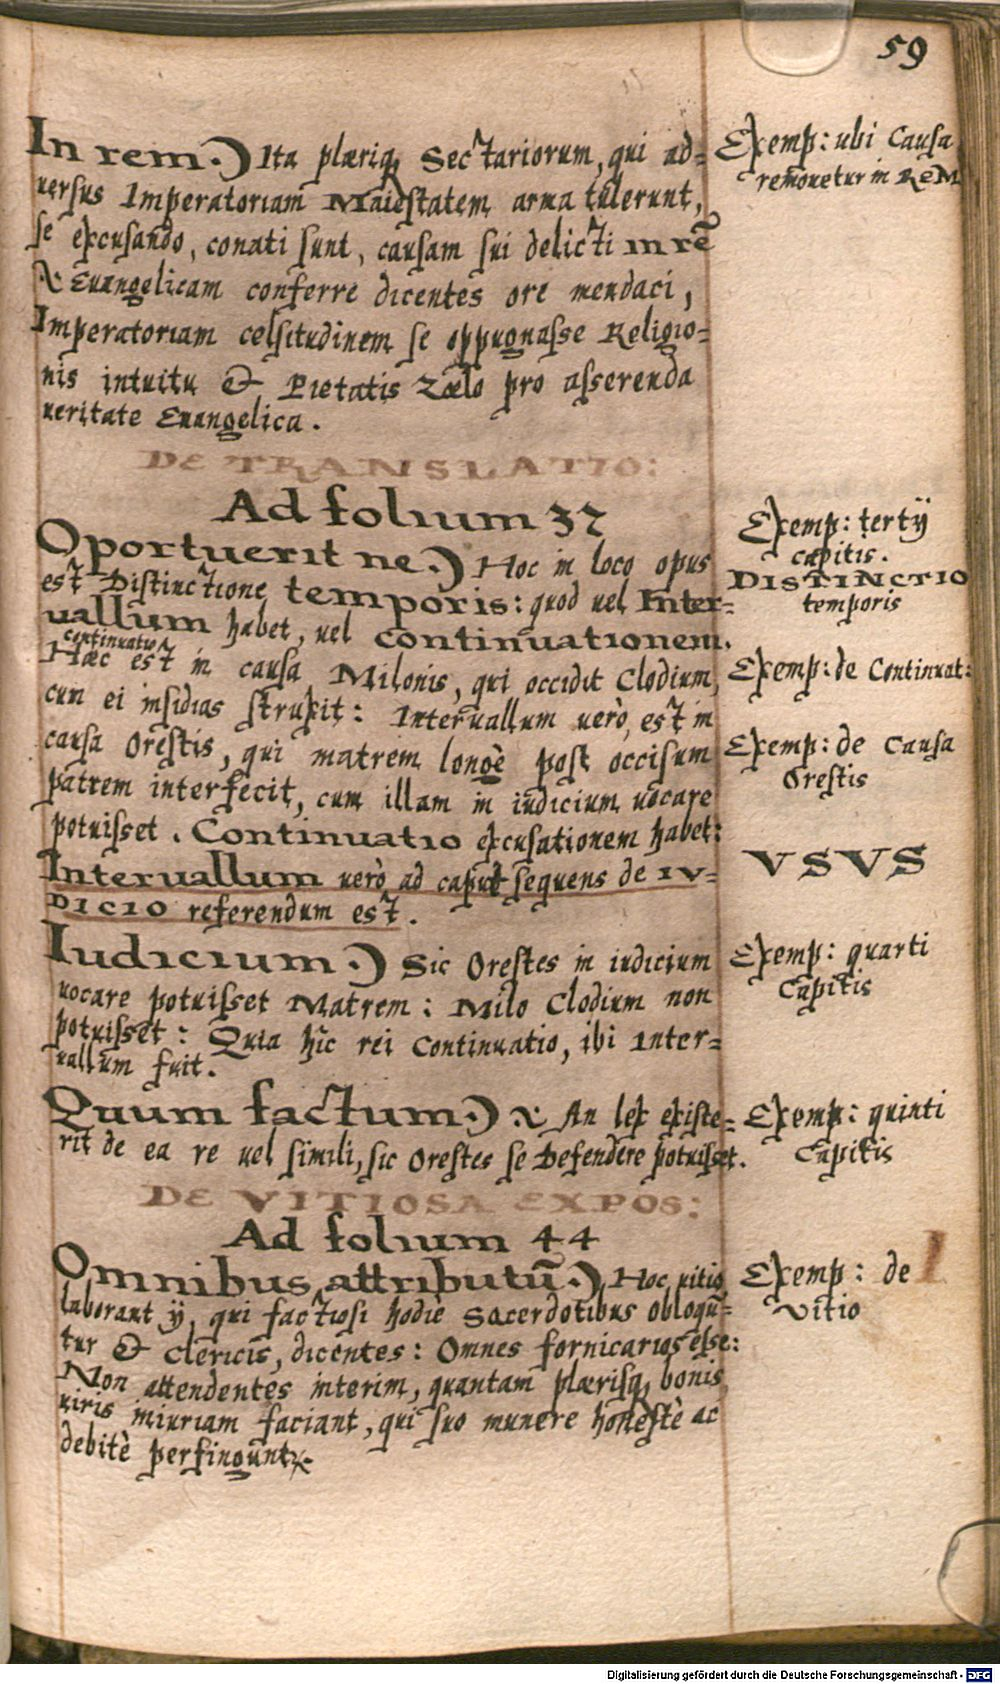 59
In rem.) Ita plæriq, Sectariorum, qui ad=
uersus Imperatoriam Maiestatem arma tulerunt,
se excusando, conati sunt, causam sui delicti in rē
Euangelicam conferre dicentes ore mendaci,
Imperatoriam celsitudinem se oppugnasse Religio=
nis intuitu & Pietatis Zælo pro asserenda
ueritate Euangelica.
Exemp: ubi Causa
remouetur in ReM
DE TRANSLATIO:
Ad folium 37
Oportuerit ne.) Hoc in loco opus
est Distinctione temporis: quod uel Inter=
uallum habet, uel continuationem.
continuatio
Hæc est in causa Milonis, qui occidit Clodium,
cum ei insidias struxit: Interuallum uerò, est in
causa Orestis, qui matrem longè post occisum
patrem interfecit, cum illam in iudicium uocare
potuisset. Continuatio excusationem habet:
Interuallum uerò ad caput sequens de IV=
DICIO referendum est.
Exemp: tertij
capitis.
DISTINCTIO
temporis
Exemp: de Continuat:
Exemp: de Causa
Orestis
VSVS
Iudicium.) Sic Orestes in iudicium
uocare potuisset Matrem: Milo Clodium non
potuisset: Quia hîc rei Continuatio, ibi Inter=
uallum fuit.
Exemp: quarti
Capitis
Quum factum.) An lex existe=
rit de ea re uel simili, sic Orestes se Defendere potuisset.
Exemp: quinti
Capitis
DE VITIOSA EXPOS:
Ad folium 44
Omnibus attributū.) Hoc uitio
laborant ij, qui factiosi hodiè Sacerdotibus obloquū=
tur & Clericis, dicentes: Omnes fornicarios esse:
Non attendentes interim, quantam plærisq, bonis
uiris iniuriam faciant, qui suo munere honestè ac
debitè perfingunt.
Exemp: de
Vitio
Digitalisierung gefördert durch die Deutsche Forschungsgemeinschaft - DFG